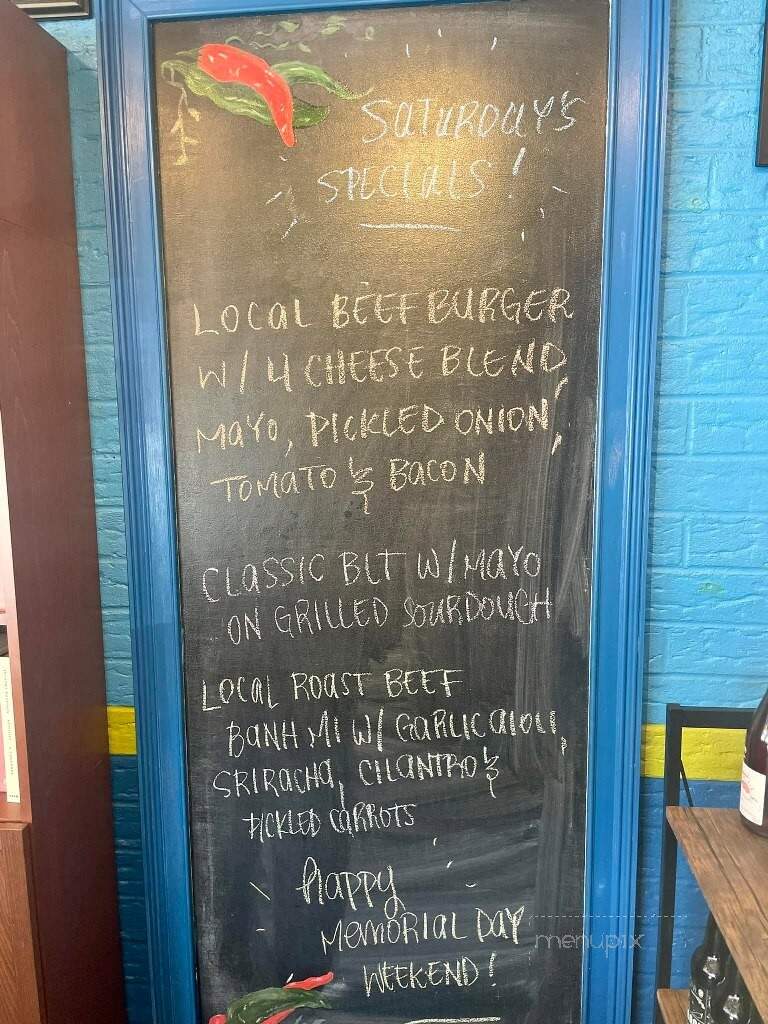 SATURDAY'S
SPECIALS!
LOCAL BEEF BURGER
W/ 4 CHEESE BLEND,
MAYO, PICKLED ONION,
TOMATO & BACON
CLASSIC BLT W/ MAYO
ON GRILLED SOURDOUGH
LOCAL ROAST BEEF
BANH MI W/ GARLIC AIOLI,
SRIRACHA, CILANTRO &
PICKLED CARROTS
Happy
MEMORIAL DAY
WEEKEND!
menupix